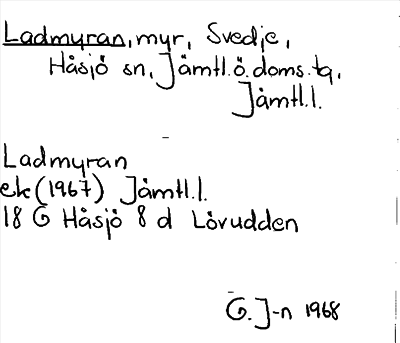 Ladmyran, myr, Svedje,
Håsjö sn, Jämtl. ö. doms. tg,
Jämtl. l.
Ladmyran
ek (1967) Jämtl. l.
18 G Håsjö 8 d Lövudden
G. J-n 1968